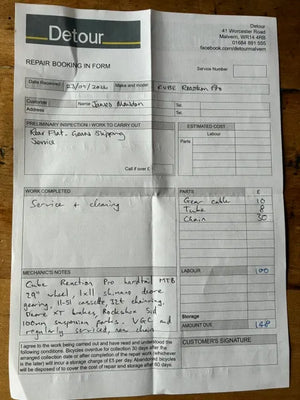 Detour
Detour
41 Worcester Road
Malvern, WR14 4RB
01684 891 555
facebook.com/detourmalvern
REPAIR BOOKING IN FORM
Service Number
Date Received 03/09/2024 Make and model CUBE Reaction Pro
Customer Name James Tel:
Address Tel:
PRELIMINARY INSPECTION / WORK TO CARRY OUT
Rear Flat. Gears Slipping
Service
Call if over £
ESTIMATED COST
Labour
Parts
WORK COMPLETED
Service & cleaning
PARTS £
Gear cable 10
Tube 8
Chain 30
MECHANIC'S NOTES
Cube Reaction Pro hardtail MTB
29" wheel, 1x11 shimano deore
gearing, 11-51 cassette, 32t chainring,
Deore XT brakes, Rockshox Sid
100mm suspension forks. VGC and
regularly serviced, new chain
LABOUR 100
Storage
AMOUNT DUE 148
I agree to the work being carried out and have read and understood the
following conditions: Bicycles overdue for collection 30 days after the
arranged collection date or after completion of the repair work (whichever
is the later) will incur a storage charge of £5 per day. Abandoned bicycles
will be disposed of to cover the cost of repair and storage after 60 days
CUSTOMER'S SIGNATURE